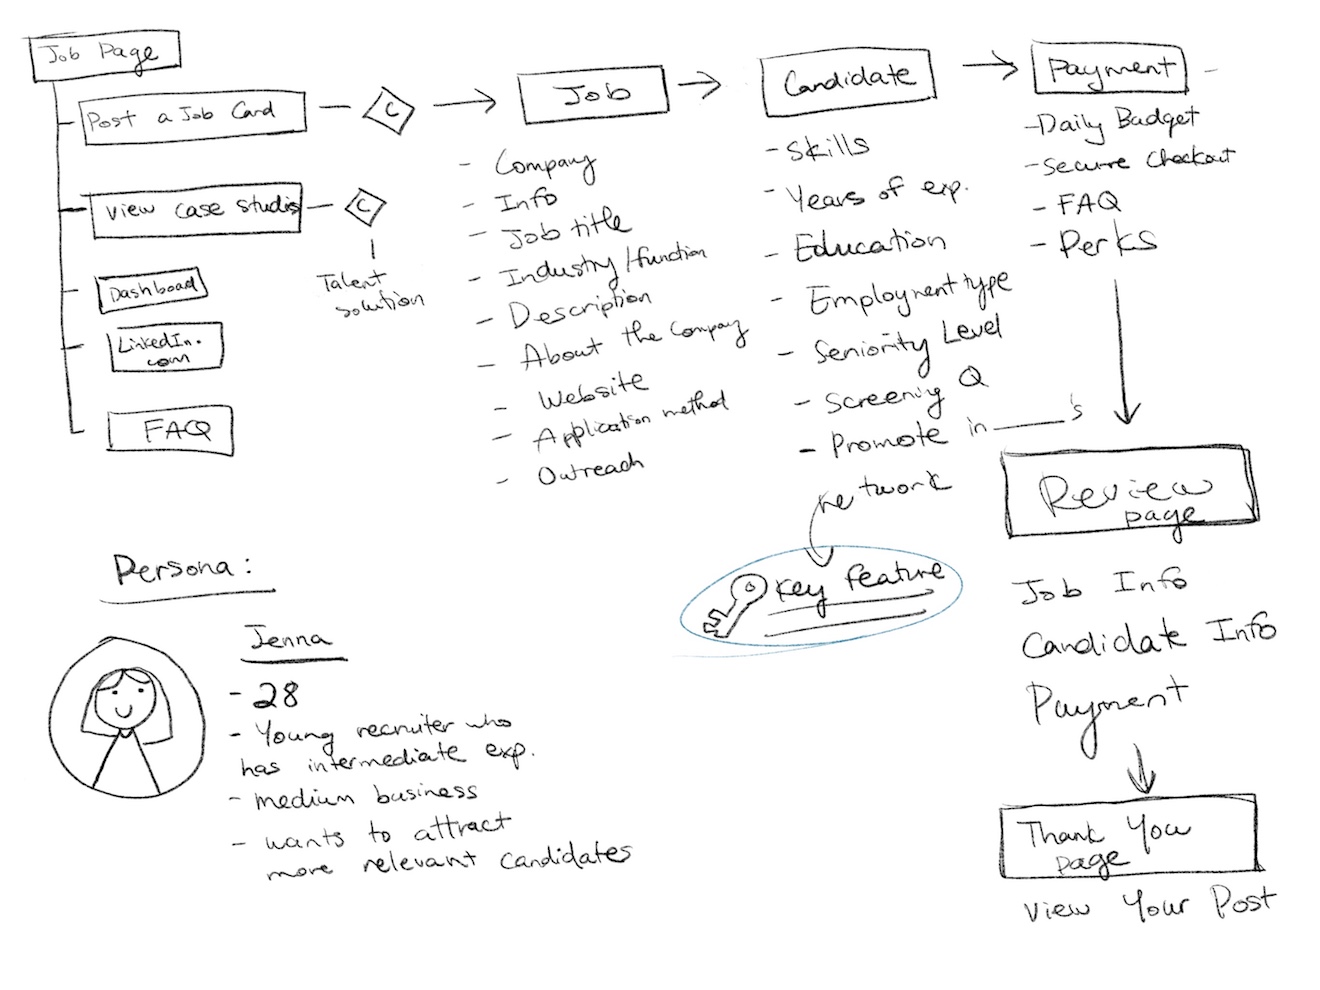 Job Page
Post a Job Card
C
View case studies
C
Talent
solution
Dashboad
LinkedIn.
com
FAQ
Job
- Company
- Info
- Job title
- Industry/function
- Description
- About the Company
- Website
- Application method
- Outreach
Candidate
- Skills
- Years of exp.
- Education
- Employment type
- Seniority Level
- Screening Q
- Promote in ______'s
network
Key feature
Payment
- Daily Budget
- Secure Checkout
- FAQ
- Perks
Review
page
Job Info
Candidate Info
Payment
Thank You
page
View Your Post
Persona:
Jenna
- 28
- Young recruiter who
has intermediate exp.
- medium business
- wants to attract
more relevant candidates